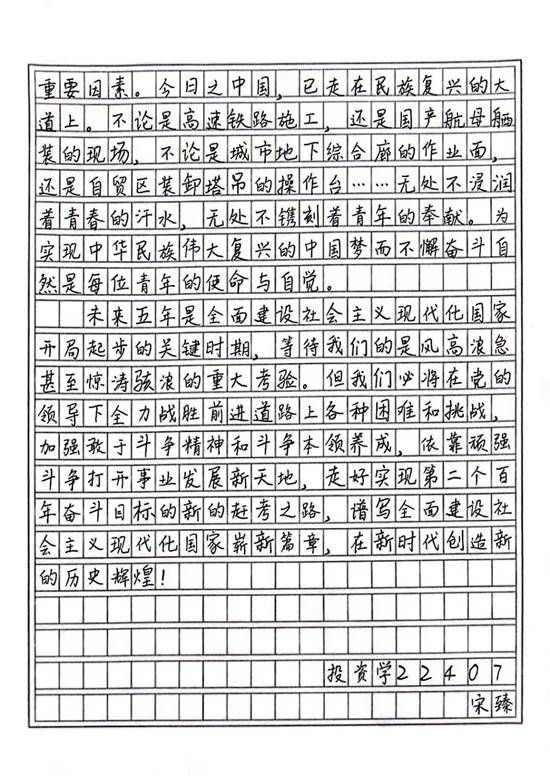 重要因素。今日之中国，已走在民族复兴的大
道上。不论是高速铁路施工，还是国产航母舾
装的现场，不论是城市地下综合廊的作业面，
还是自贸区装卸塔吊的操作台……无处不浸润
着青春的汗水，无处不镌刻着青年的奉献。为
实现中华民族伟大复兴的中国梦而不懈奋斗自
然是每位青年的使命与自觉。
未来五年是全面建设社会主义现代化国家
开局起步的关键时期，等待我们的是风高浪急
甚至惊涛骇浪的重大考验。但我们必将在党的
领导下全力战胜前进道路上各种困难和挑战，
加强敢于斗争精神和斗争本领养成，依靠顽强
斗争打开事业发展新天地，走好实现第二个百
年奋斗目标的新的赶考之路，谱写全面建设社
会主义现代化国家崭新篇章，在新时代创造新
的历史辉煌！
投资学22407
宋臻